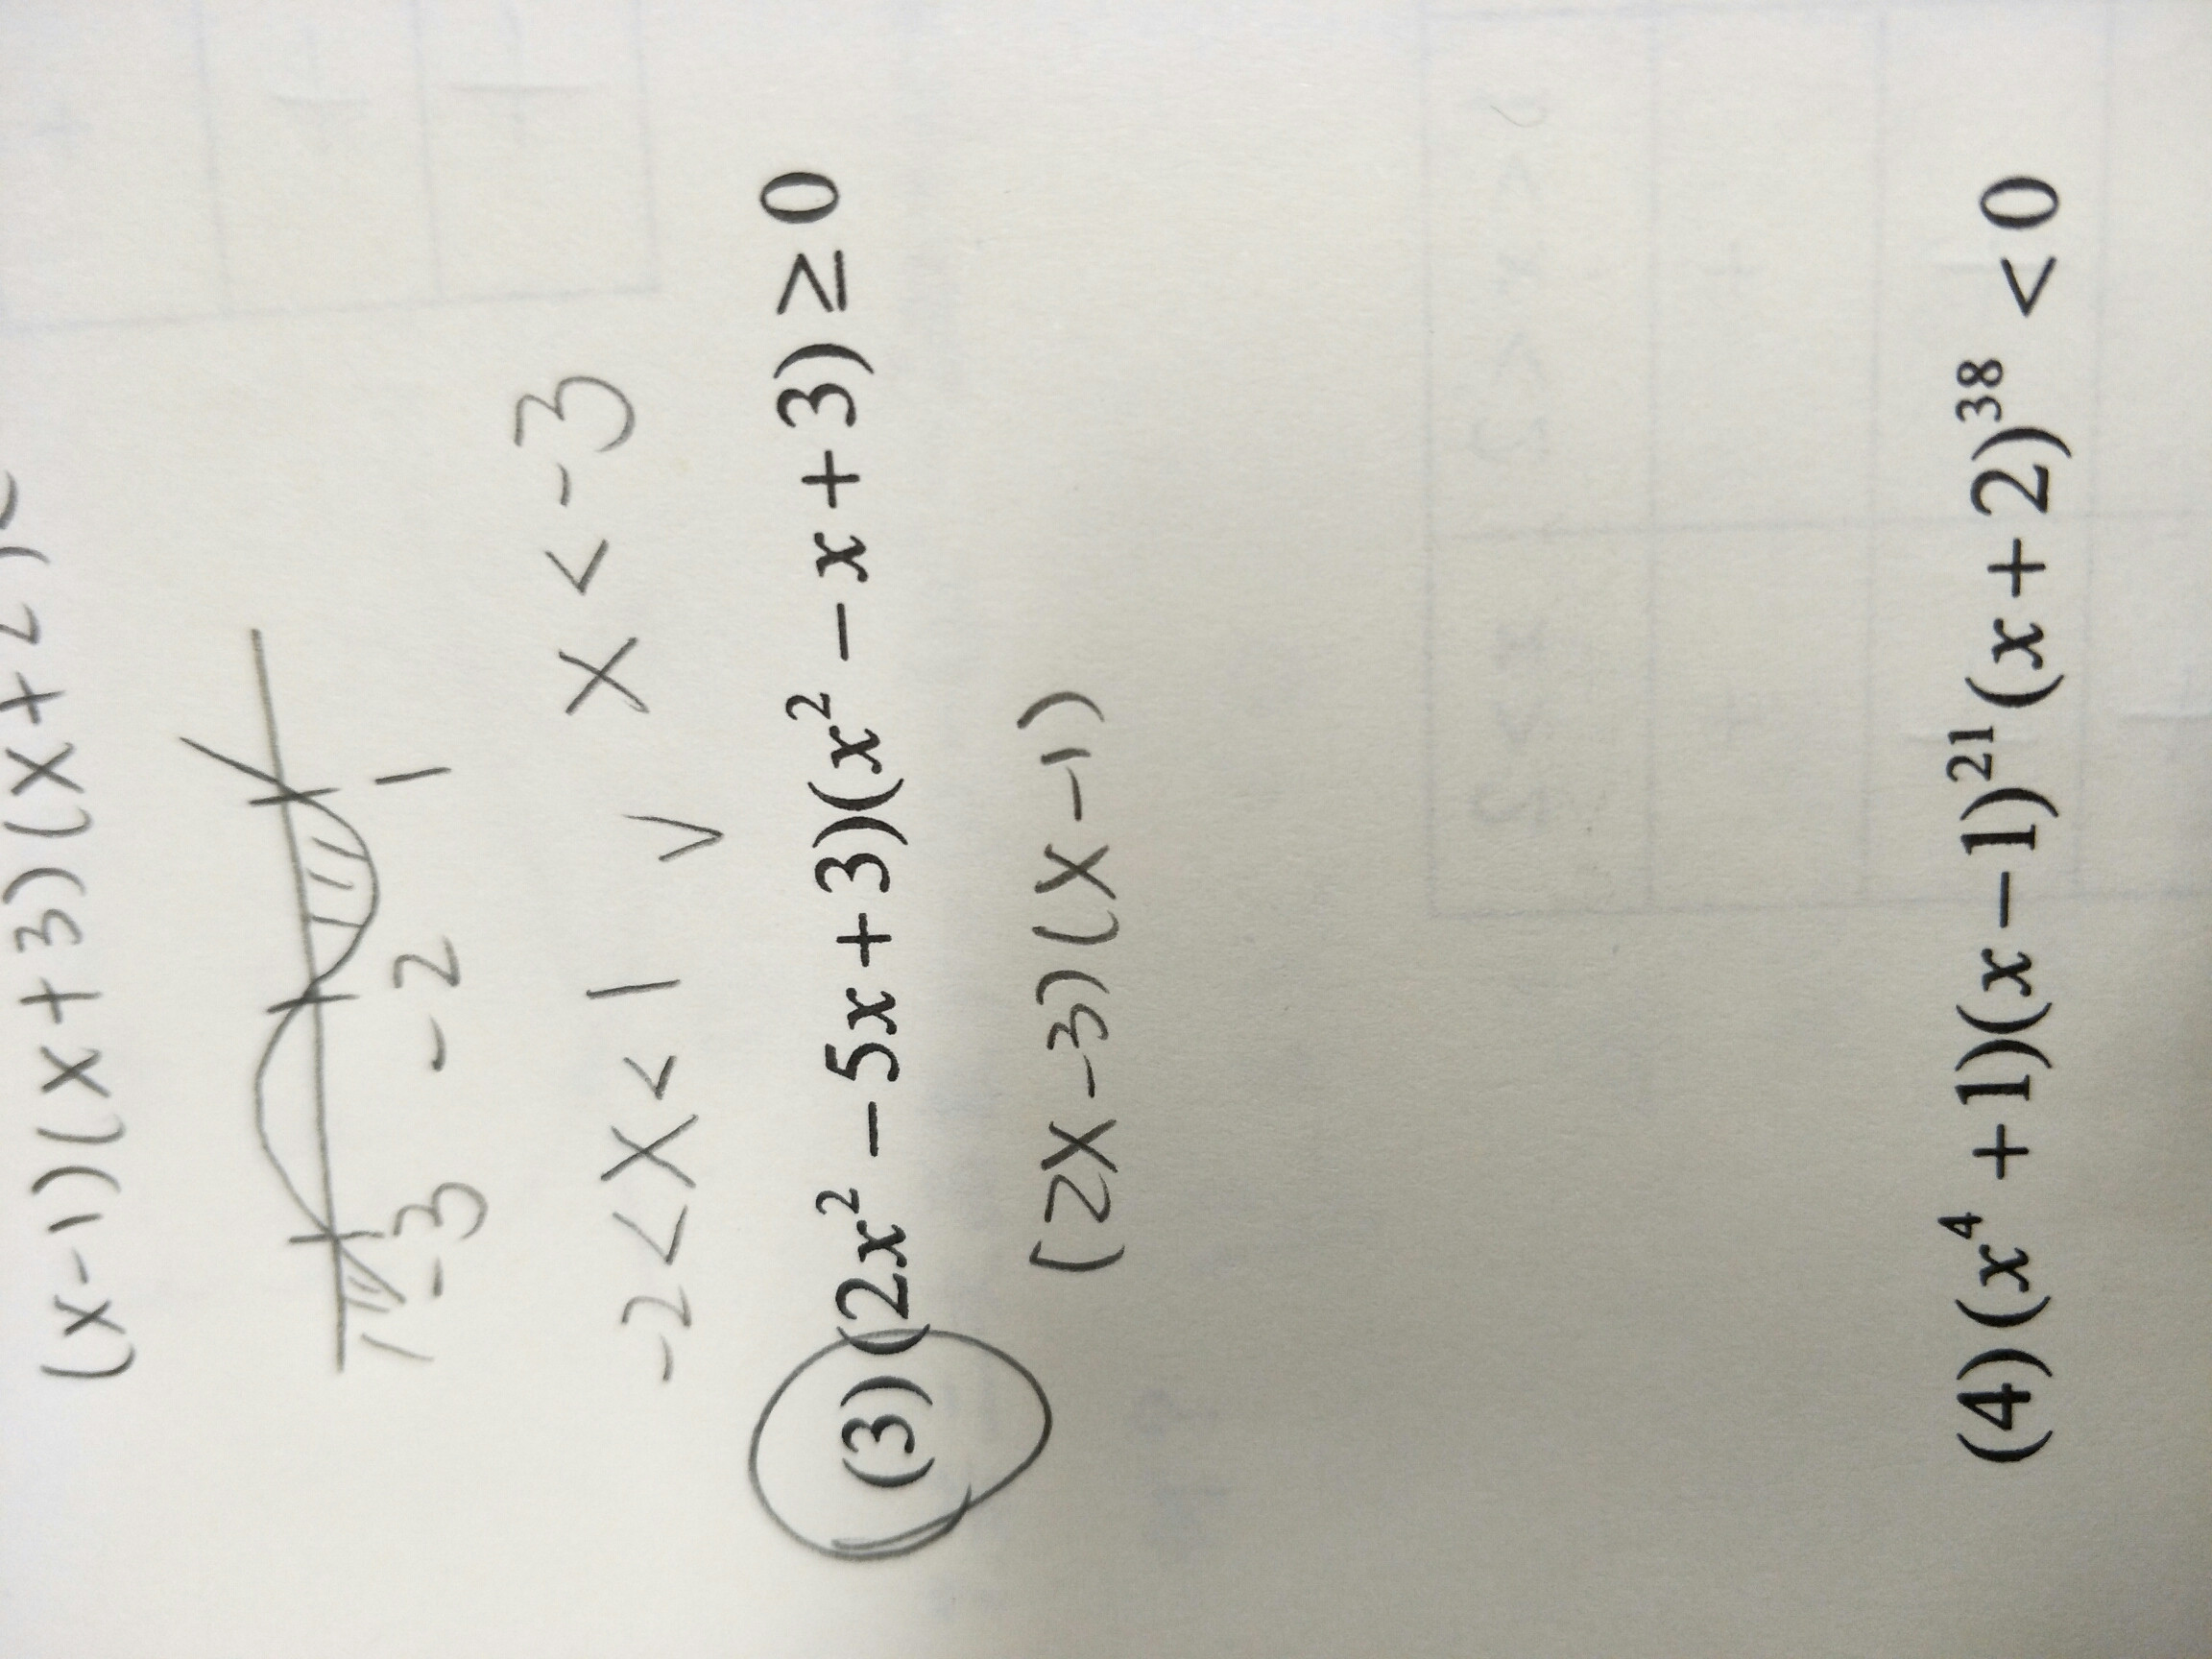 (x-1)(x+3)(x+2)
-3 -2 1
-2<x<1 ∨ x<-3
(3)(2x²-5x+3)(x²-x+3)≥0
(2x-3)(x-1)
(4)(x⁴+1)(x-1)²¹(x+2)³⁸<0